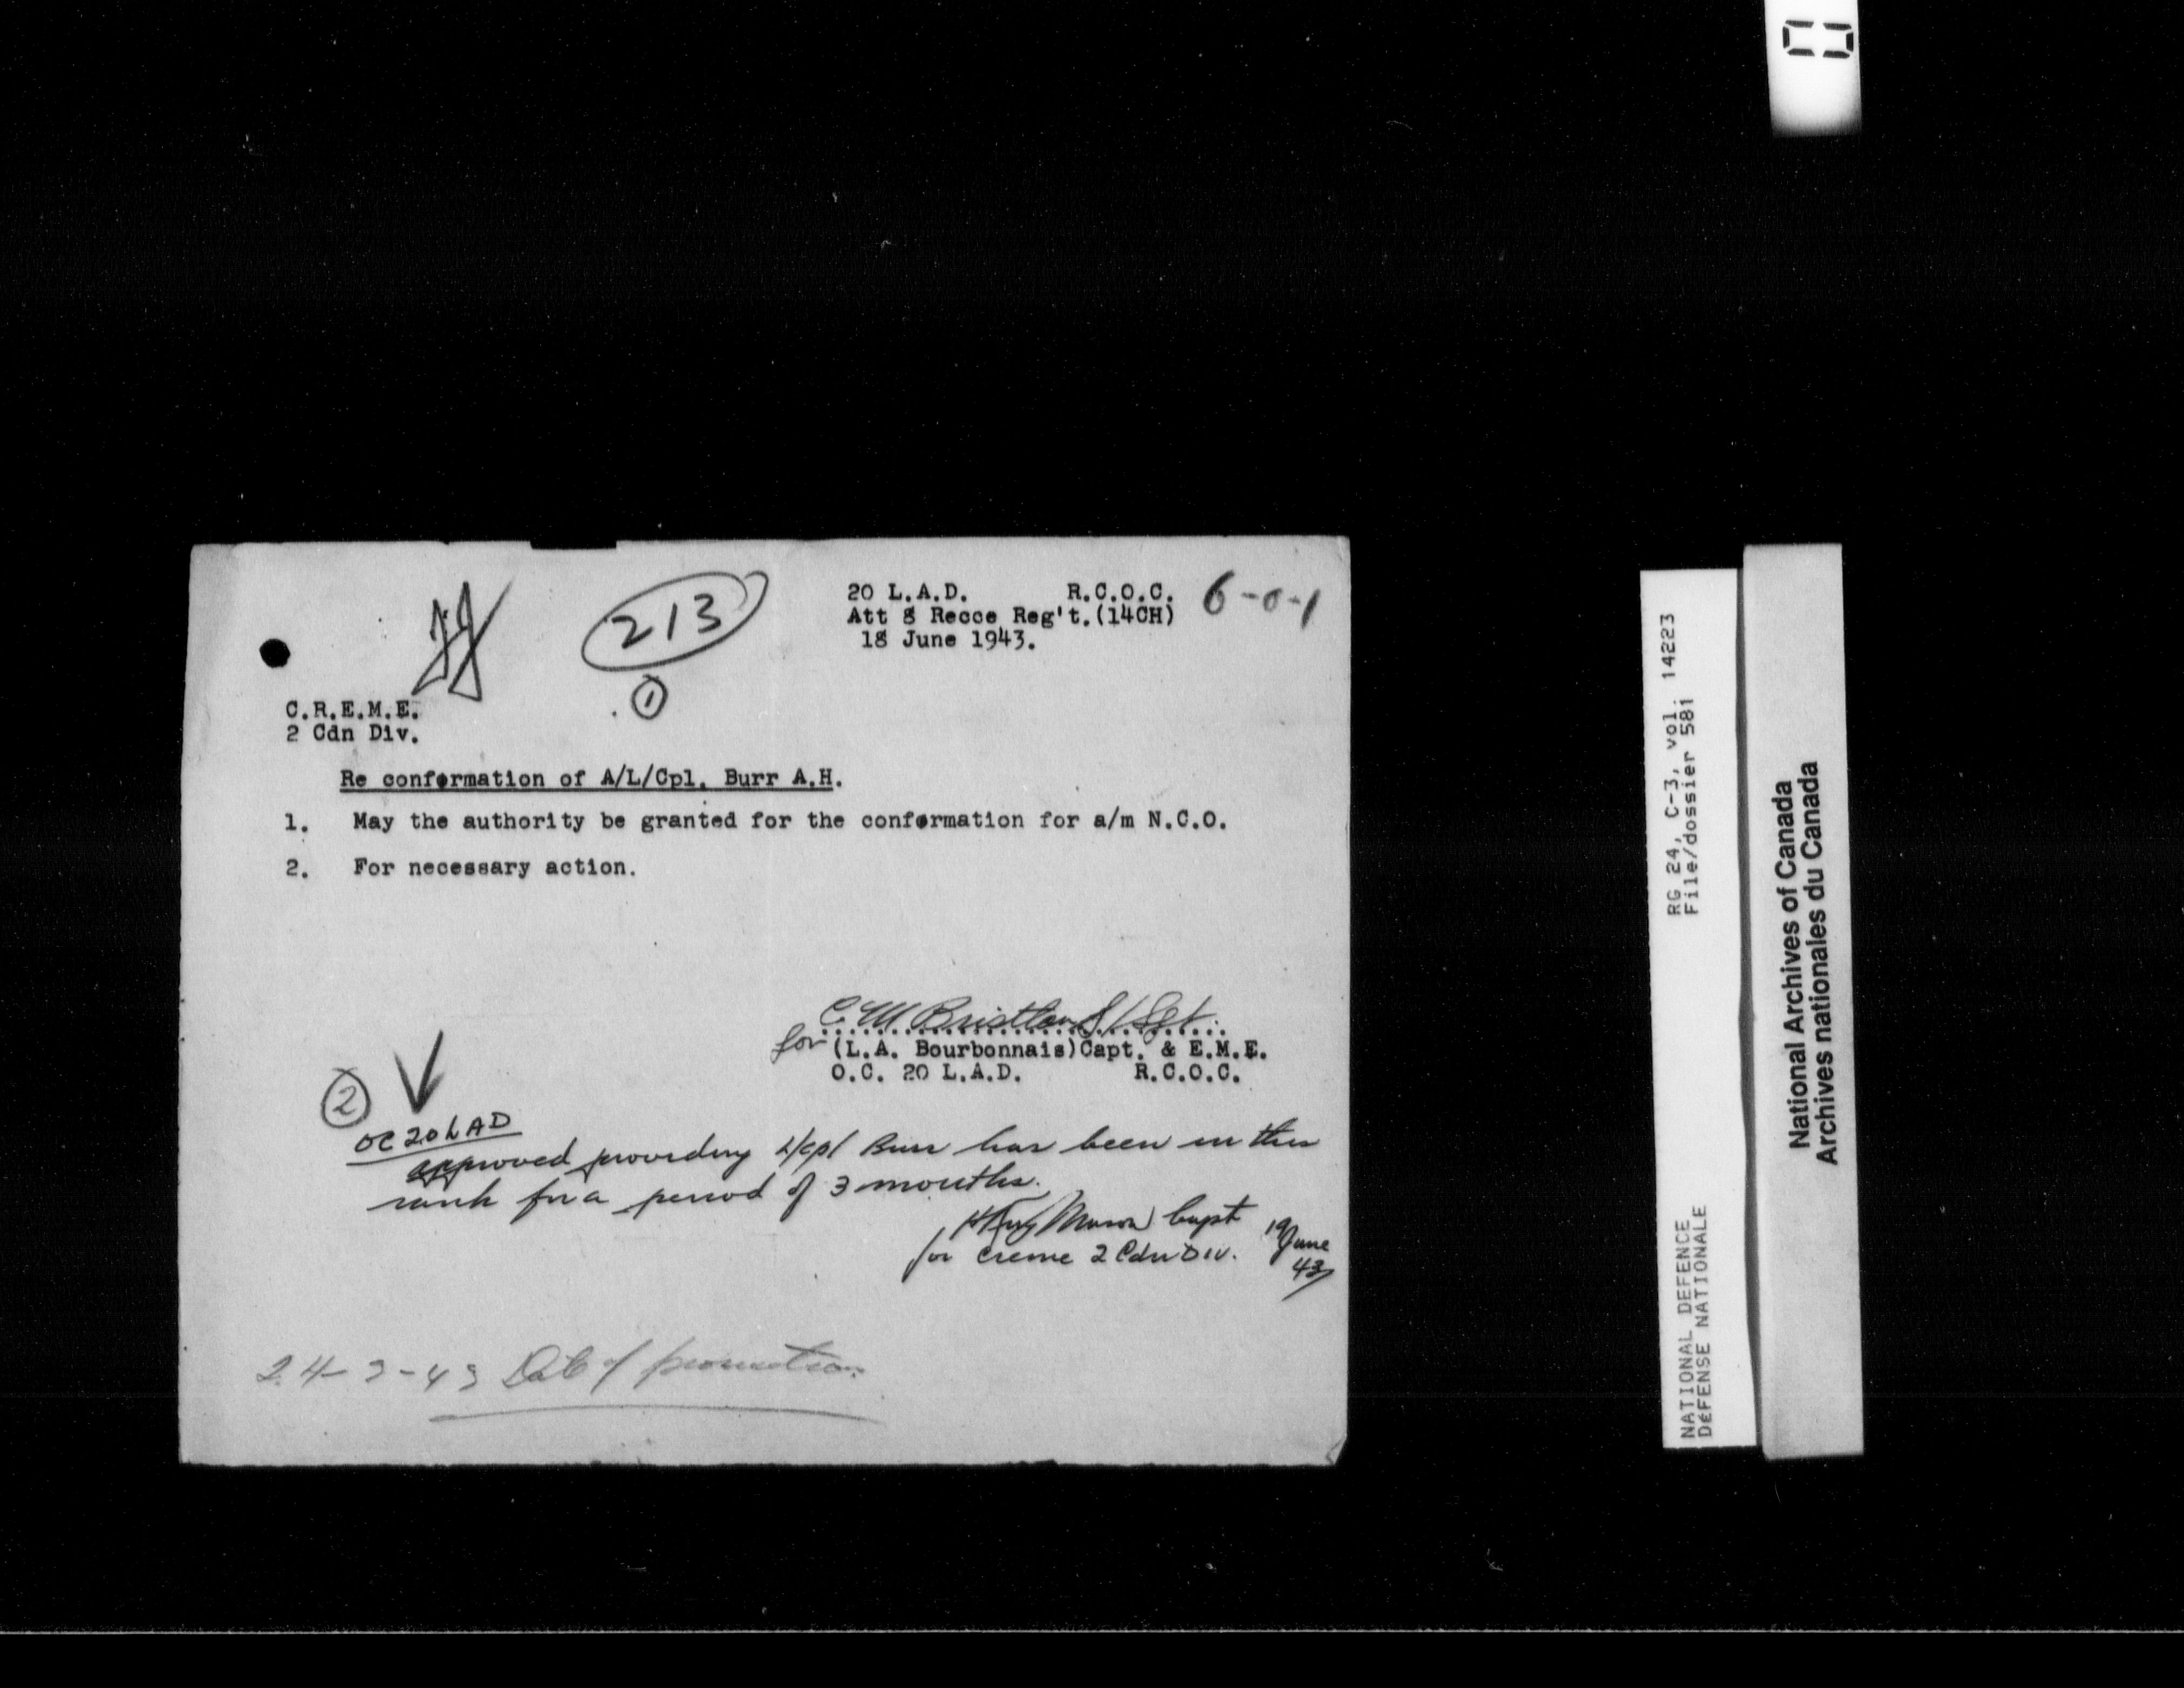 213
20 L.A.D. R.C.O.C. 6-0-1
Att 8 Recce Reg't.(14CH)
18 June 1943.
1
C.R.E.M.E.
2 Cdn Div.
Re conformation of A/L/Cpl. Burr A.H.
1. May the authority be granted for the conformation for a/m N.C.O.
2. For necessary action.
C. M. S/Sgt.
for (L.A. Bourbonnais)Capt. & E.M.E.
O.C. 20 L.A.D. R.C.O.C.
2
OC 20 LAD
approved providing L/cpl Burr has been in this
rank for a period of 3 months.
Mason Capt
for Creme 2 Cdn Div. 19 June
43
24-3-43 Date of promotion
RG 24, C-3, vol. 14223
File/dossier 581
NATIONAL DEFENCE
DéFENSE NATIONALE
National Archives of Canada
Archives nationales du Canada